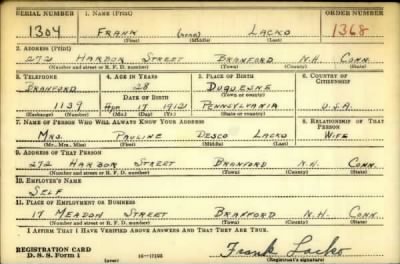 SERIAL NUMBER 1. NAME (Print) ORDER NUMBER
1304 FRANK (NONE) LACKO 1368
(First) (Middle) (Last)
2. ADDRESS (Print)
272 HARBOR STREET BRANFORD N.H. CONN.
(Number and street or R. F. D. number) (Town) (County) (State)
3. TELEPHONE 4. AGE IN YEARS 5. PLACE OF BIRTH 6. COUNTRY OF CITIZENSHIP
BRANFORD 28 DUQUESNE
DATE OF BIRTH (Town or county)
1139 APR 17 1912 PENNSYLVANIA U.S.A.
(Exchange) (Number) (Mo.) (Day) (Yr.) (State or country)
7. NAME OF PERSON WHO WILL ALWAYS KNOW YOUR ADDRESS 8. RELATIONSHIP OF THAT PERSON
MRS. PAULINE DESCO LACKO WIFE
(Mr., Mrs., Miss) (First) (Middle) (Last)
9. ADDRESS OF THAT PERSON
272 HARBOR STREET BRANFORD N.H. CONN.
(Number and street or R. F. D. number) (Town) (County) (State)
10. EMPLOYER'S NAME
SELF
11. PLACE OF EMPLOYMENT OR BUSINESS
17 MEADOW STREET BRANFORD N.H. CONN.
(Number and street or R. F. D. number) (Town) (County) (State)
I AFFIRM THAT I HAVE VERIFIED ABOVE ANSWERS AND THAT THEY ARE TRUE.
REGISTRATION CARD
D. S. S. Form 1 (over) Frank Lacko
(Registrant's signature)